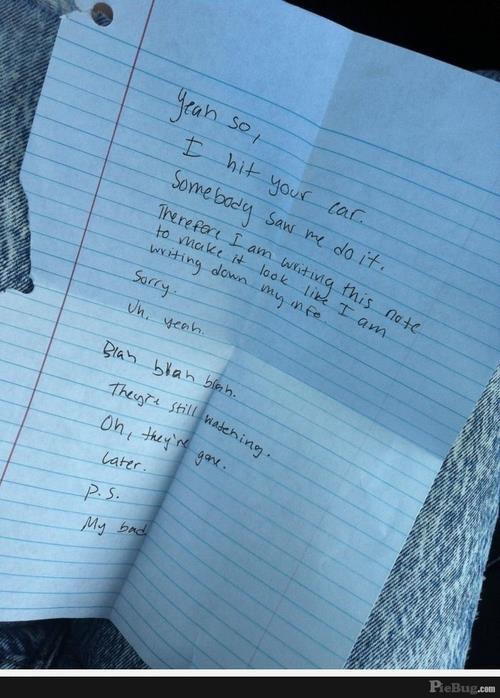 Yeah so,
I hit your car.
Somebody saw me do it.
Therefore I am writing this note
to make it look like I am
writing down my info.
Sorry.
Uh, yeah.
Blah blah blah.
They're still watching.
Oh, they're gone.
Later.
P.S.
My bad
PieBug.com